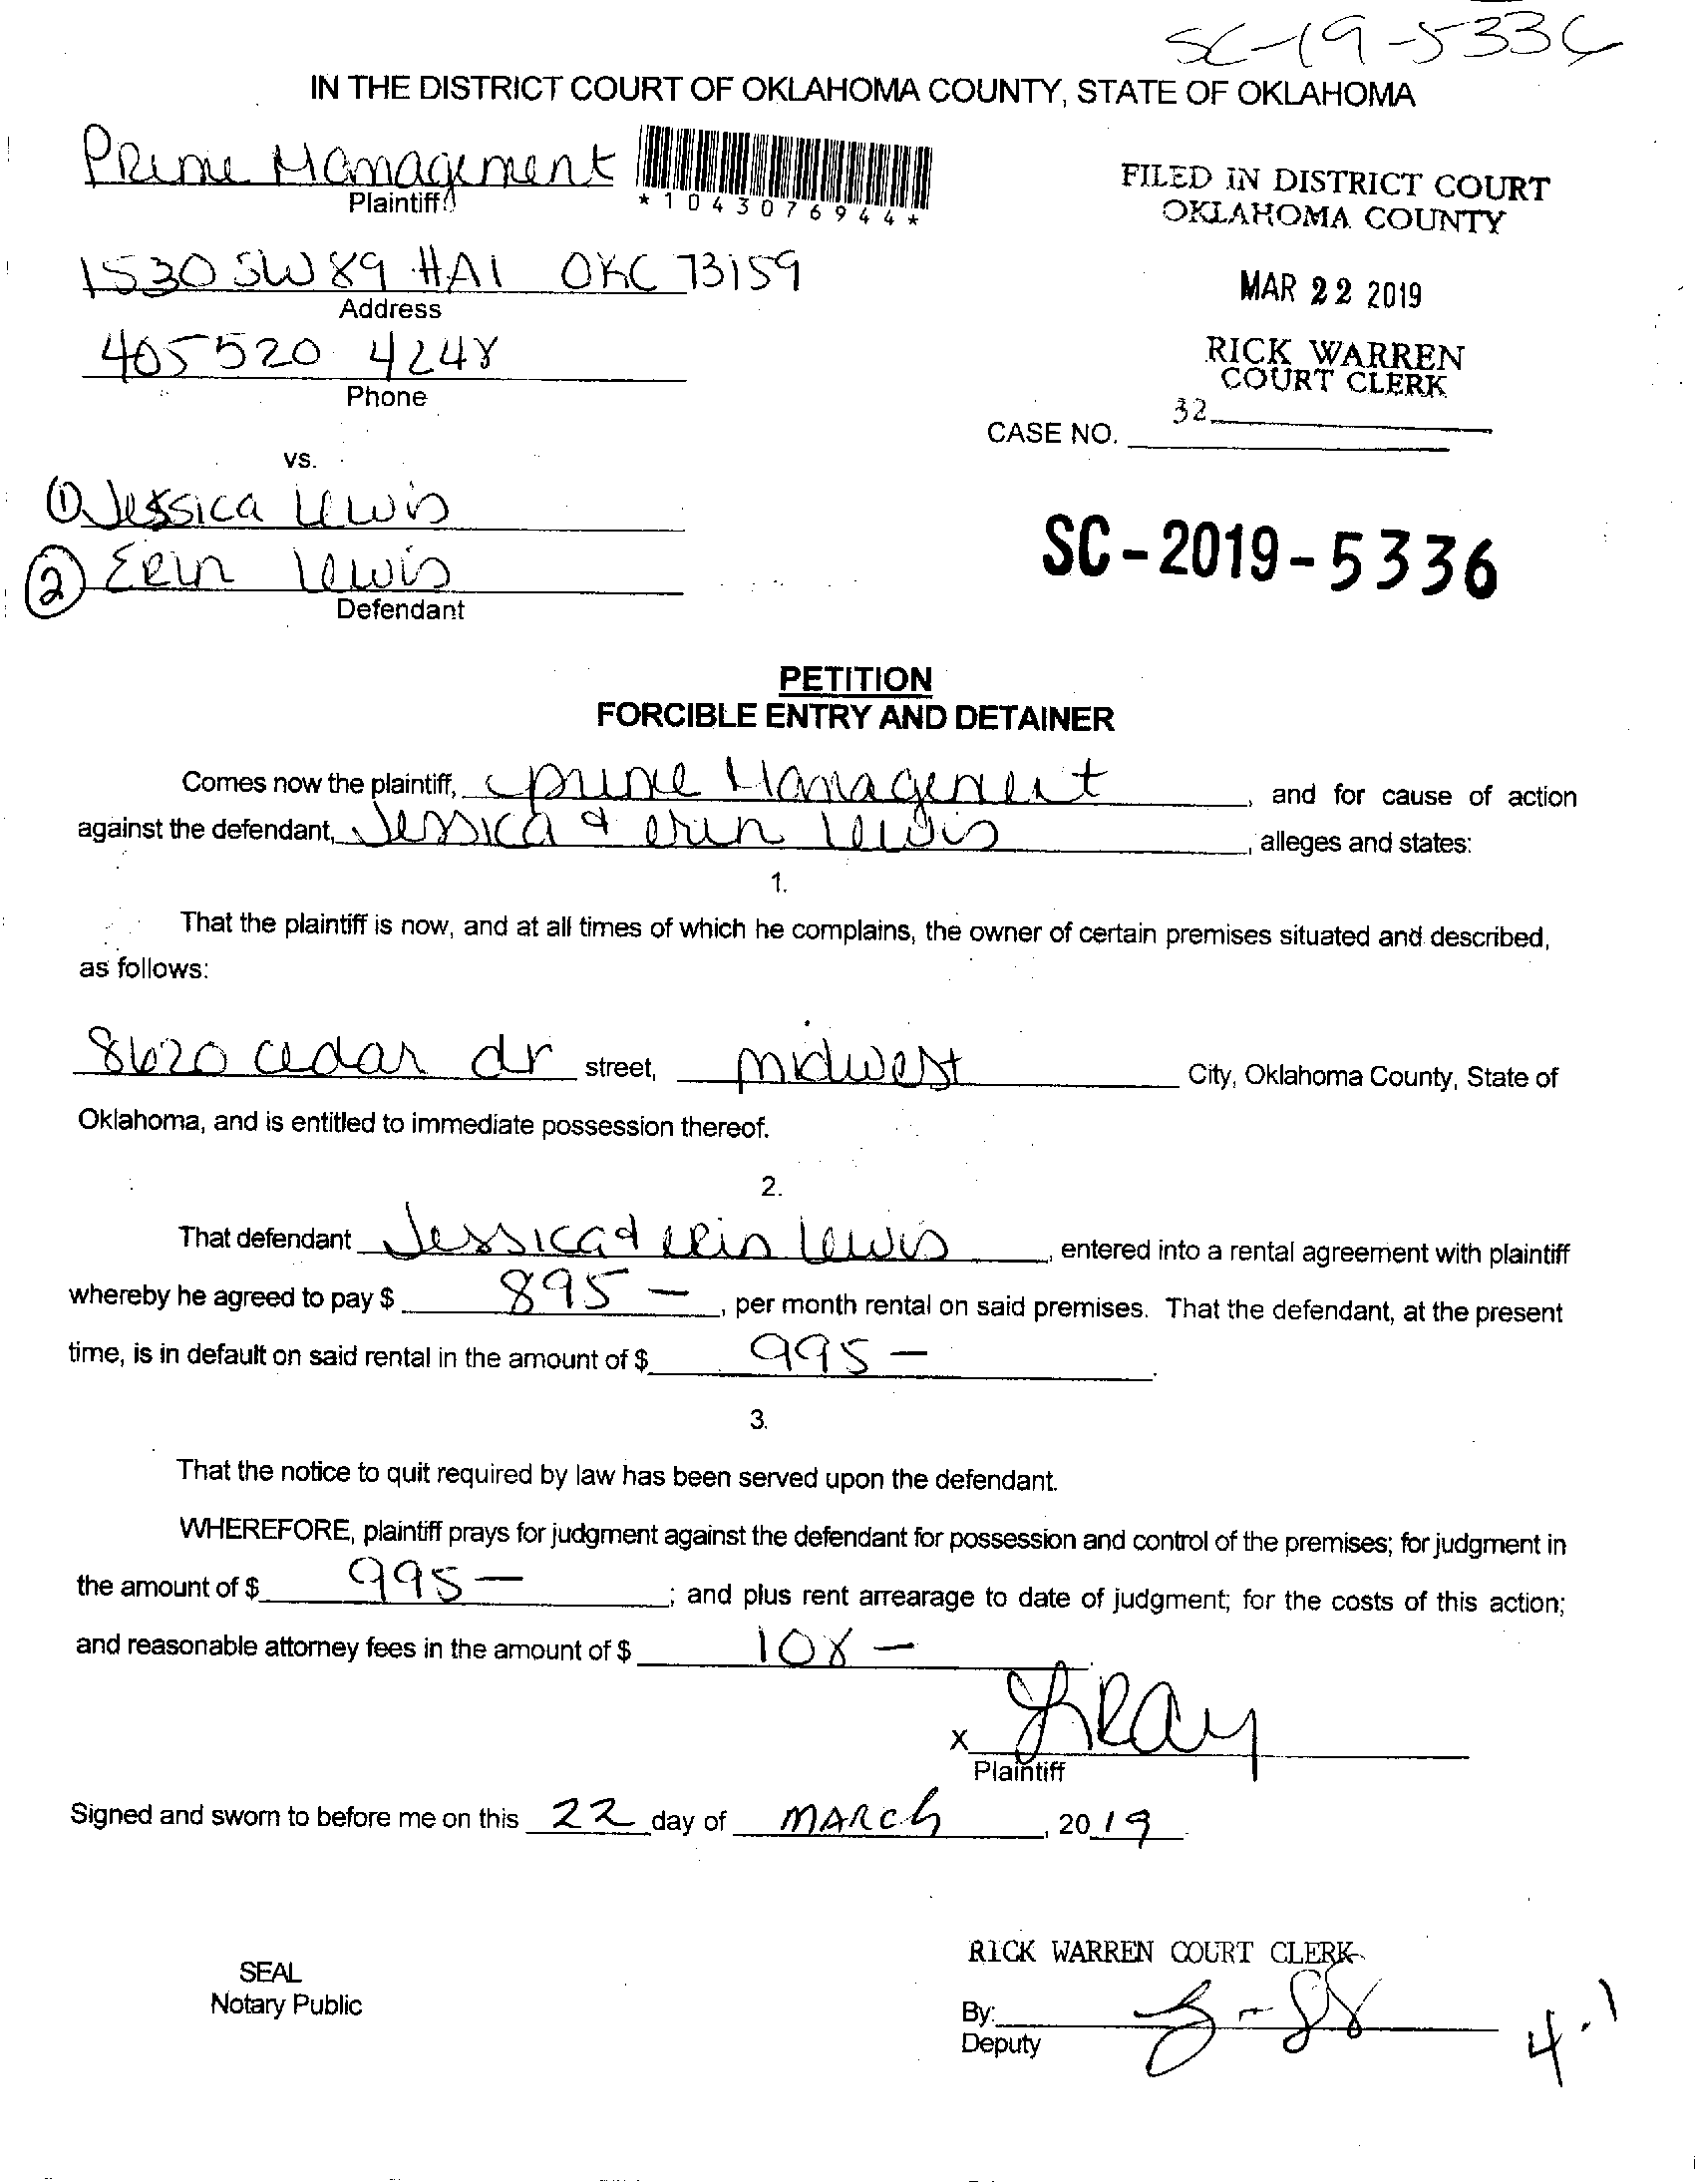 SC-19-5336
IN THE DISTRICT COURT OF OKLAHOMA COUNTY, STATE OF OKLAHOMA
Prime Management
Plaintiff
*1043076944*
FILED IN DISTRICT COURT
OKLAHOMA COUNTY
1530 SW 89 #A1 OKC 73159
Address
MAR 22 2019
405 520 4248
Phone
RICK WARREN
COURT CLERK
32
CASE NO.
vs.
① Jessica Lewis
② Erin Lewis
Defendant
SC-2019-5336
PETITION
FORCIBLE ENTRY AND DETAINER
Comes now the plaintiff, Prime Management, and for cause of action
against the defendant, Jessica & erin lewis, alleges and states:
1.
That the plaintiff is now, and at all times of which he complains, the owner of certain premises situated and described,
as follows:
8620 cedar dr street, midwest City, Oklahoma County, State of
Oklahoma, and is entitled to immediate possession thereof.
2.
That defendant Jessica & erin lewis, entered into a rental agreement with plaintiff
whereby he agreed to pay $ 895 —, per month rental on said premises. That the defendant, at the present
time, is in default on said rental in the amount of $ 995 —.
3.
That the notice to quit required by law has been served upon the defendant.
WHEREFORE, plaintiff prays for judgment against the defendant for possession and control of the premises; for judgment in
the amount of $ 995 —; and plus rent arrearage to date of judgment; for the costs of this action;
and reasonable attorney fees in the amount of $ 108 —
X
Plaintiff
Signed and sworn to before me on this 22 day of MARCH, 2019
RICK WARREN COURT CLERK
SEAL
Notary Public
By:
Deputy
4.1